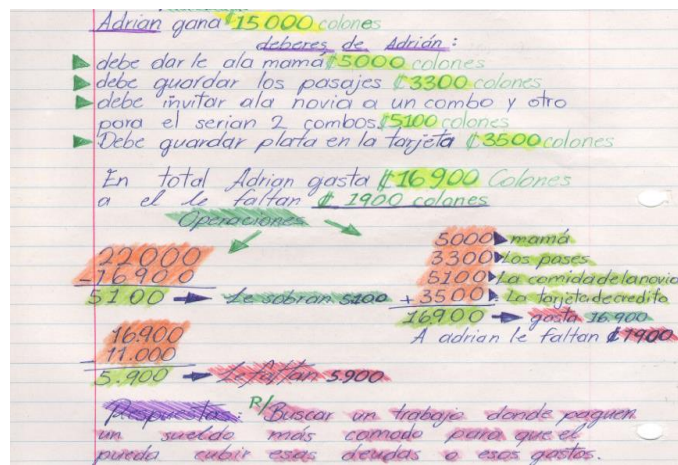 Adrian gana ₡15000 colones
deberes de Adrián:
debe darle ala mamá ₡5000 colones
debe guardar los pasajes ₡3300 colones
debe invitar ala novia a un combo y otro
para el serian 2 combos ₡5100 colones
Debe guardar plata en la tarjeta ₡3500 colones
En total Adrian gasta ₡16900 Colones
a el le faltan ₡ 1900 colones
Operaciones
22000
-16900
5100 → Le sobran 5100
16.900
- 11.000
5.900 → Le faltan 5.900
5000 mamá
3300 Los pases
5100 La comida de la novia
+ 3500 La tarjeta de credito
16900 → gasta 16.900
A adrian le faltan ₡1900
Respuesta: R/ Buscar un trabajo donde paguen
un sueldo más comodo para que el
pueda cubir esas deudas o esos gastos.